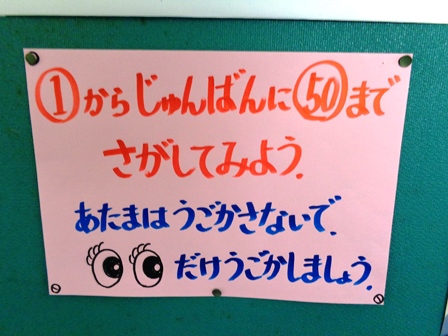 ①からじゅんばんに㊿まで
さがしてみよう.
あたまはうごかさないで.
だけうごかしましょう.